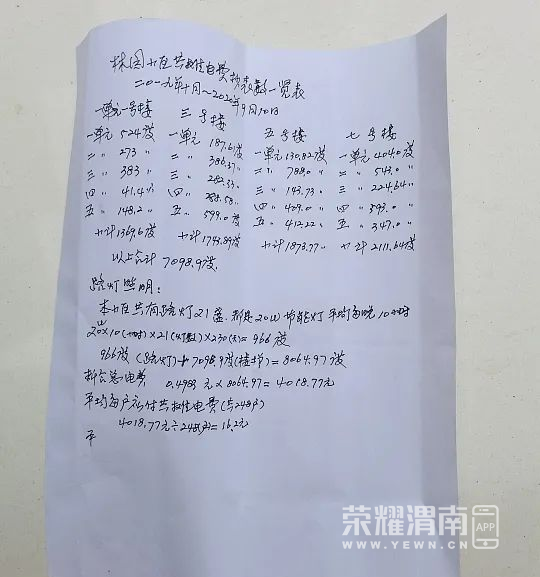 林园小区共摊电费抄表数一览表
二〇一九年十月~2020年9月10日
一单元一号楼 三号楼 五号楼 七号楼
一单元 524度 一单元 187.61度 一单元 130.82度 一单元 404.0度
二 〃 273 〃 二 〃 386.37 〃 二 〃 788.0 〃 二 〃 543.0 〃
三 〃 383 〃 三 〃 282.33 〃 三 〃 143.73 〃 三 〃 224.64 〃
四 〃 41.4 〃 四 〃 288.58 〃 四 〃 409.0 〃 四 〃 593.0 〃
五 〃 148.2 〃 五 〃 599.0度 五 〃 412.22 〃 五 〃 347.0 〃
小计1369.6度 小计1743.89度 小计1873.77 〃 小计2111.64度
以上合计 7098.9度.
路灯照明:
本小区共有路灯21盏. 20W节能灯 平均每晚10小时
20W×10(小时)×21(灯数)×230(天)=966度
966度(路灯)+7098.9度(楼梯)=8064.97度
折合总电费 0.4983元×8064.97=4018.77元
平均每户应付共摊电费(共248户)
4018.77元÷248户=16.2元
平
荣耀渭南 APP
WWW.YEWN.CN